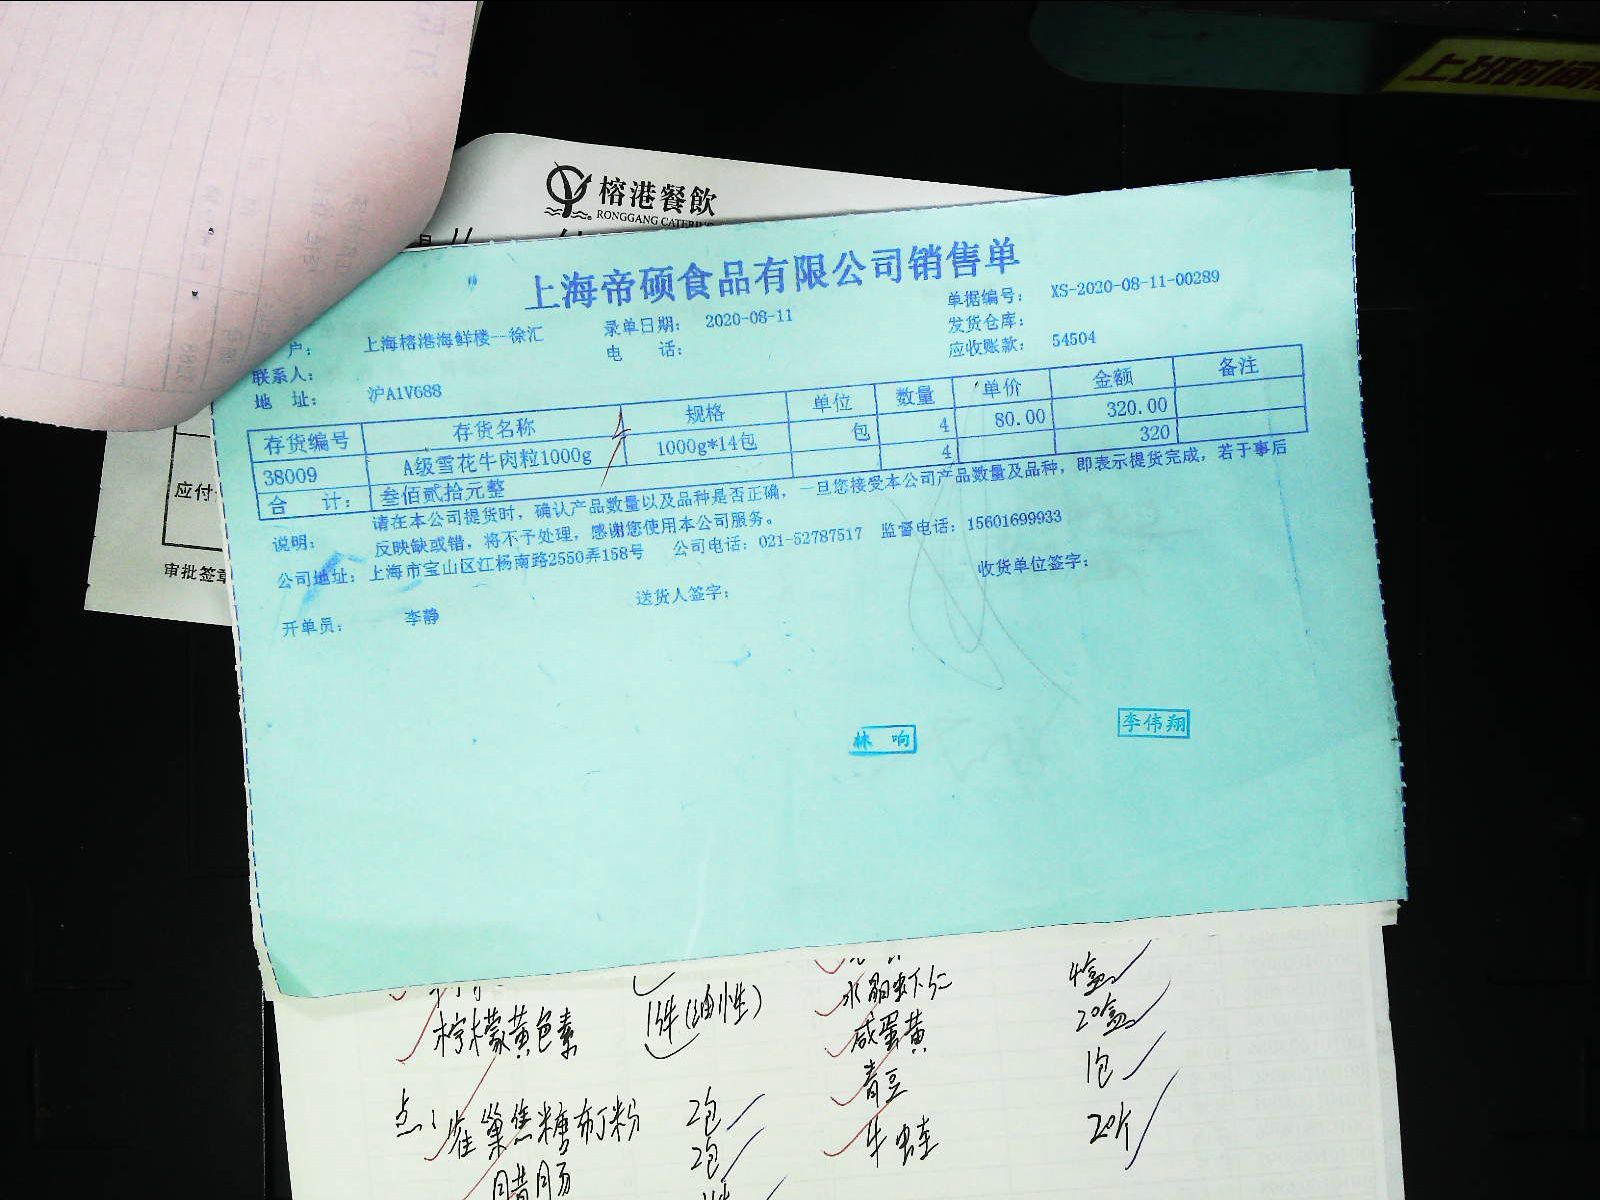 上班时间
榕港餐飲
RONGGANG CATERING
上海帝硕食品有限公司销售单
户： 上海榕港海鲜楼--徐汇 录单日期： 2020-08-11 单据编号： XS-2020-08-11-00289
联系人： 电 话： 发货仓库：
地 址： 沪A1VG88 应收账款： 54504
存货编号 存货名称 规格 单位 数量 单价 金额 备注
38009 A级雪花牛肉粒1000g 4 1000g*14包 包 4 80.00 320.00
合 计： 叁佰贰拾元整 4 320
说明： 请在本公司提货时，确认产品数量以及品种是否正确，一旦您接受本公司产品数量及品种，即表示提货完成，若于事后
反映缺或错，将不予处理，感谢您使用本公司服务。
公司地址： 上海市宝山区江杨南路2550弄158号 公司电话：021-52787517 监督电话：15601699933
开单员： 李静 送货人签字： 收货单位签字：
应付
审批签章
林 响
李伟翔
柠檬黄色素 1件(油性)
点： 雀巢焦糖布丁粉 2包
腊肠 2包
水晶虾仁 4盒
咸蛋黄 20盒
青豆 1包
牛蛙 20斤